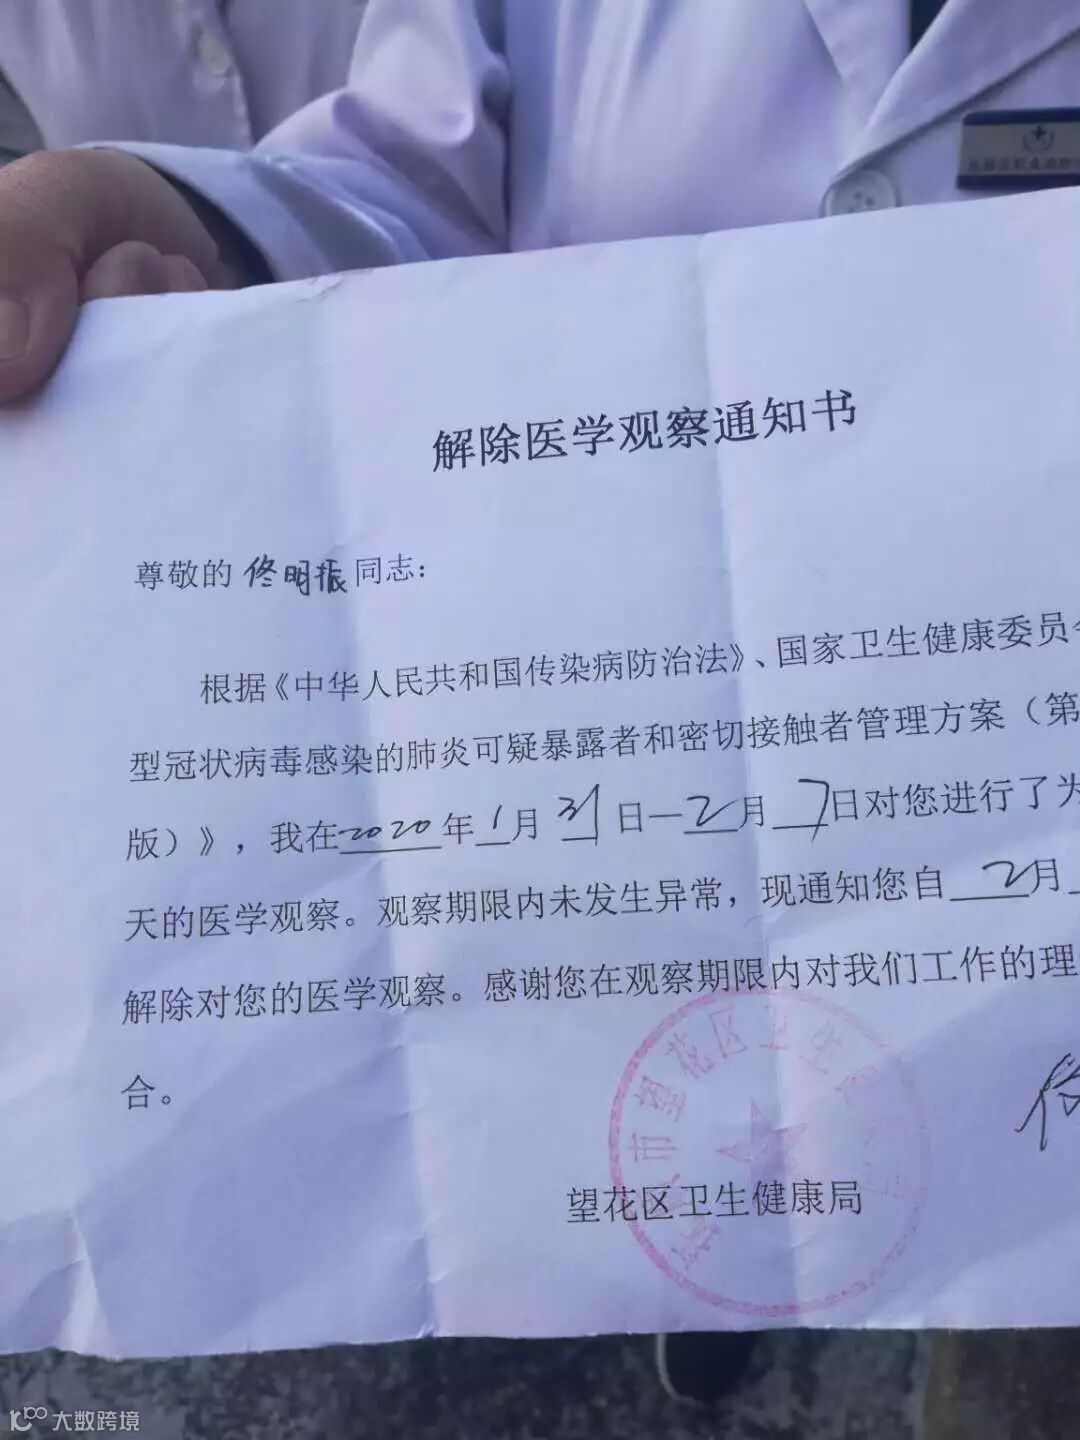 解除医学观察通知书
尊敬的佟明振同志：
根据《中华人民共和国传染病防治法》、国家卫生健康委员会
型冠状病毒感染的肺炎可疑暴露者和密切接触者管理方案（第
版）》，我在2020年1月31日—2月7日对您进行了为
天的医学观察。观察期限内未发生异常，现通知您自2月
解除对您的医学观察。感谢您在观察期限内对我们工作的理
合。
市望花区卫生
望花区卫生健康局
大数跨境